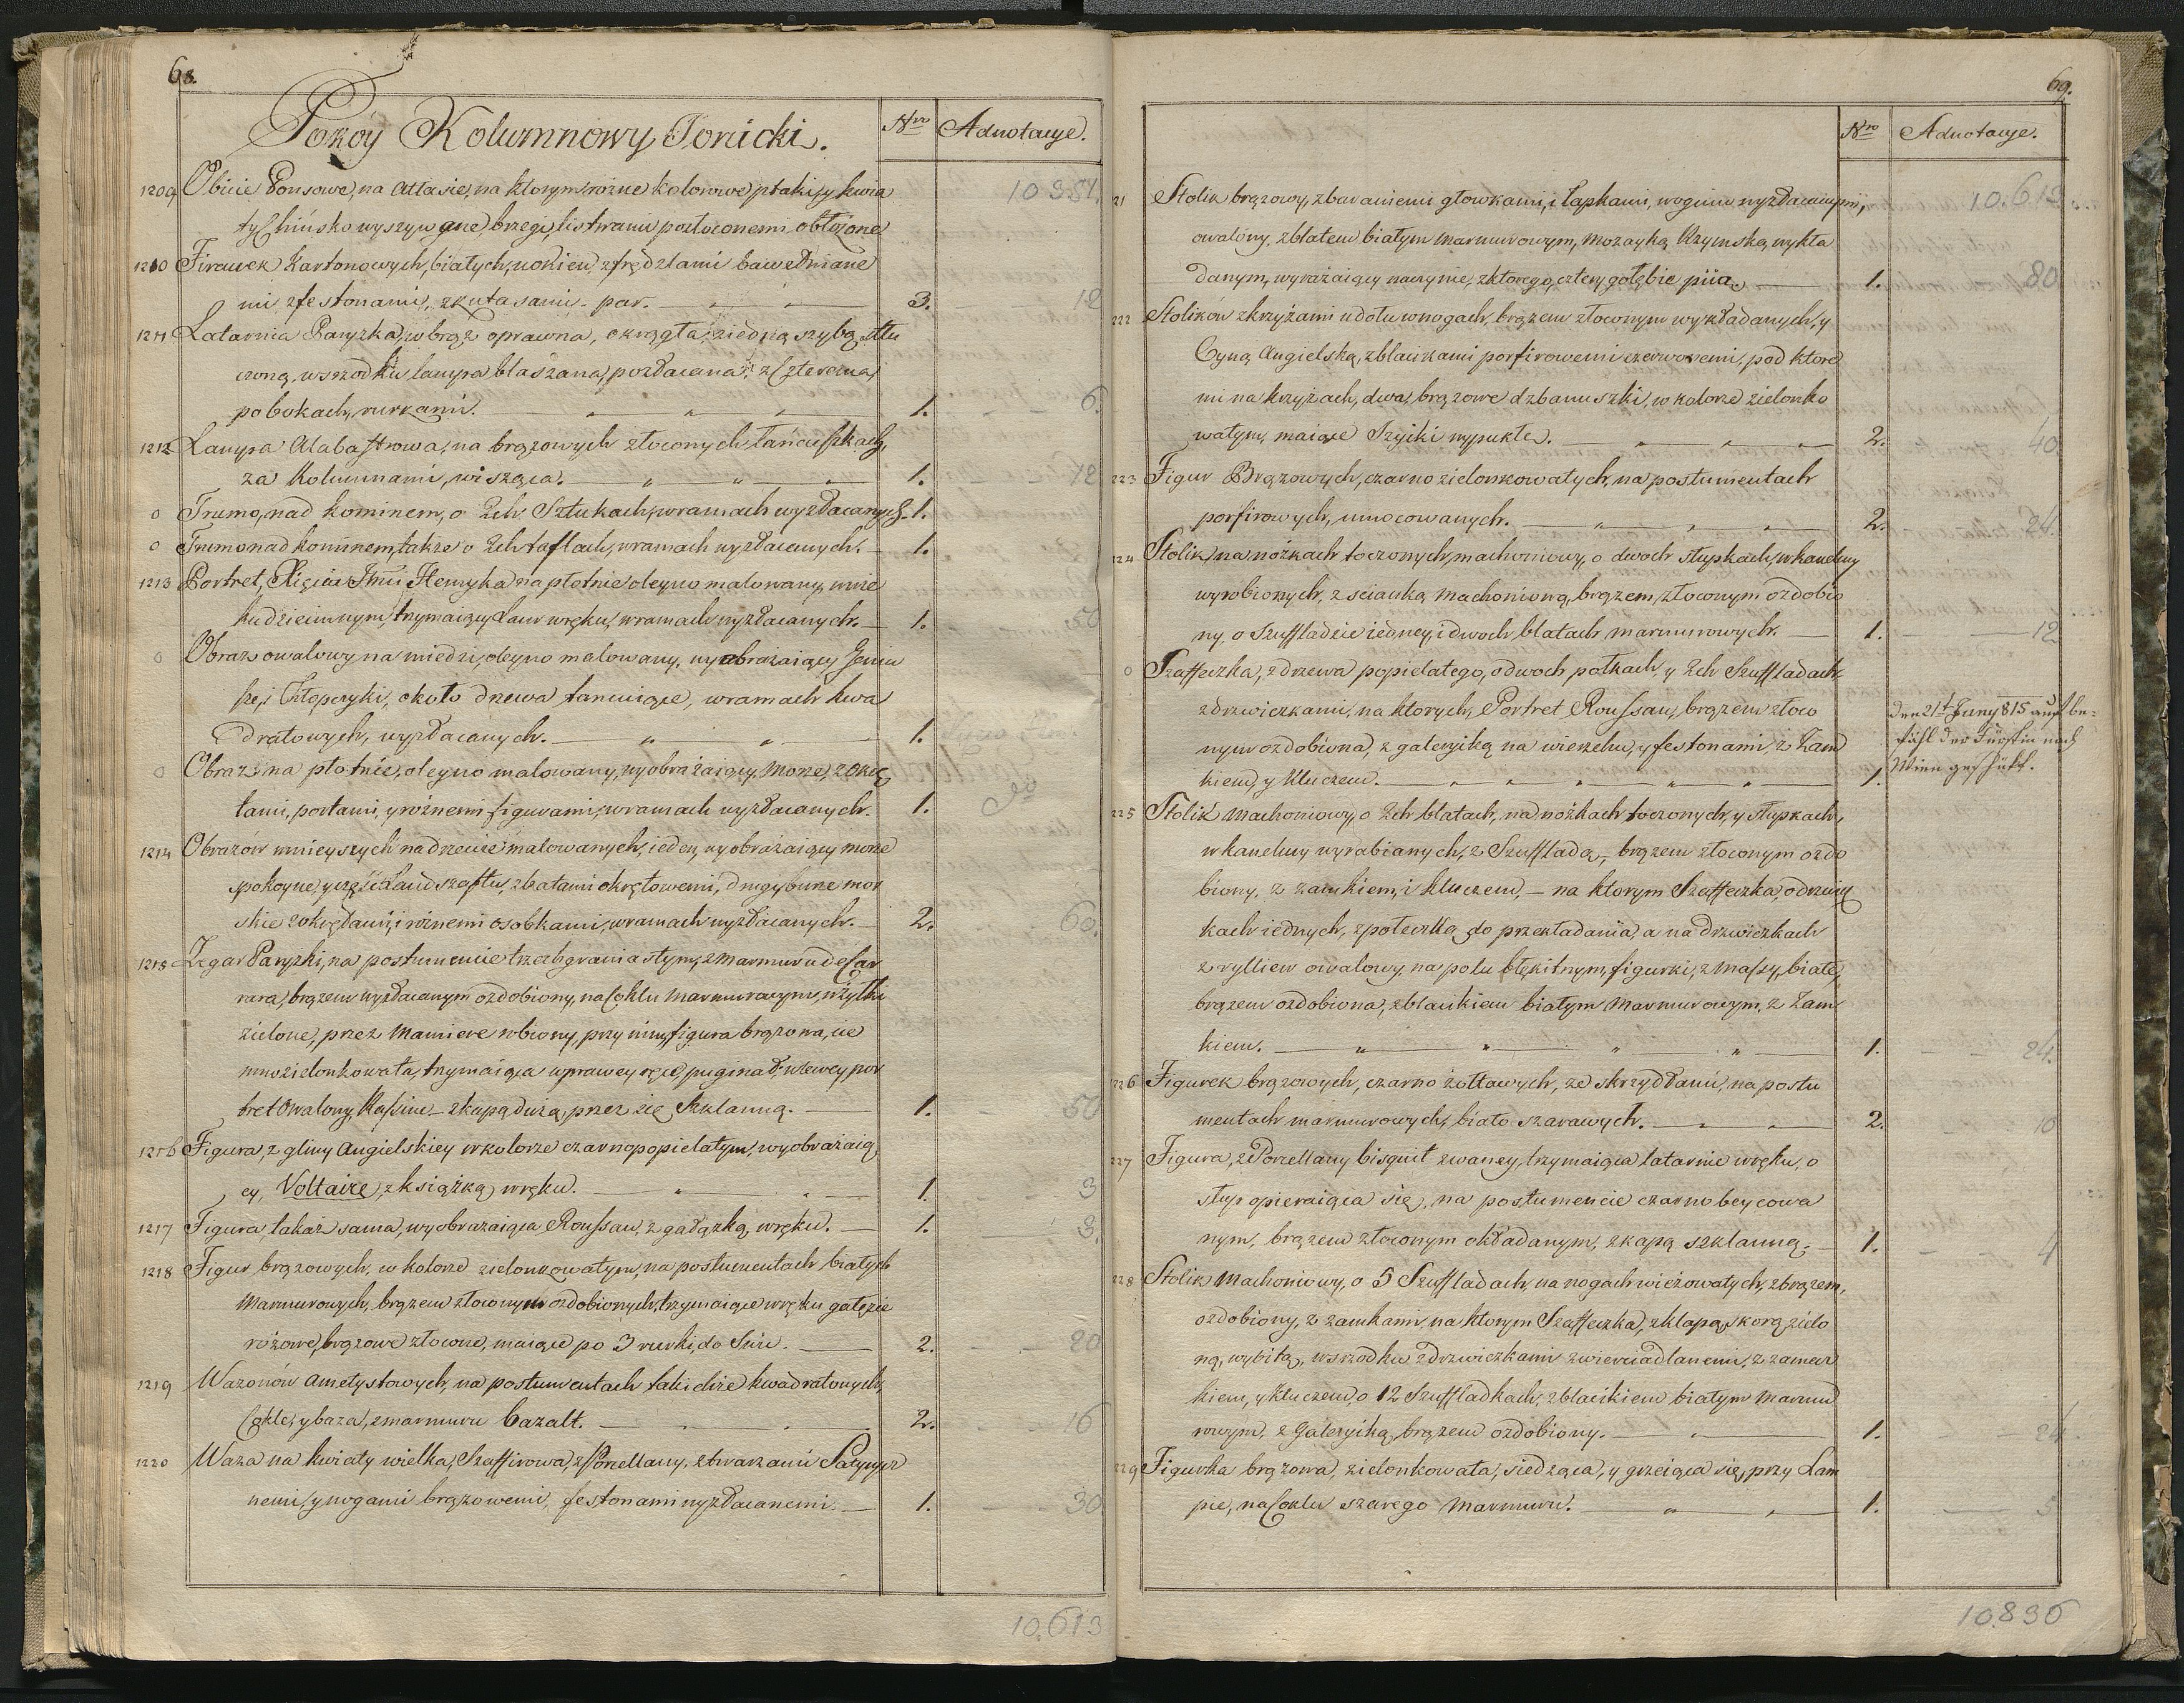 68.
Pokóy Kolumnowy Jonicki.
Nro
Adnotacye.
1209 Obicie Ponsowe, na Atłasie, na ktorym rożne kolorowe ptaki, y kwia 10381.
ty Chińsko wyszywane, brzegi, listwami pozłoconemi obłożone
1210 Firanek Kartonowych, białych, u okien, z frędzlami bawełniane
mi z festonami, z kutasami - par. 3. 12
1211 Latarnia Paryzka, w brąz oprawna, okrągła, z iedną szybą stłu
czoną, wsrzodku lampa blaszana, pozłacana, z czterema,
po bokach, rurkami. 1. 6.
1212 Lampa Alabastrowa, na brązowych złoconych łańcuszkach,
za Kolumnami, wisząca. 1. 12
0 Trumo, nad kominem, o 2ch Sztukach, w ramach wyzłacanych. 1.
0 Trumo nad kominem, także o 2ch taflach, w ramach wyzłacanych. 1.
1213 Portret, Xięcia Jmci Henryka na płotnie oleyno malowany, w wie
ku dziecinnym, trzymaiący Laur w ręku, w ramach wyzłacanych. 1. 50
0 Obraz owalowy na miedzi, oleyno malowany, wyobrażaiący Geniu
sze, i Chłopczyki, około drzewa tancuiące, w ramach kwa
dratowych, wyzłacanych. 1.
0 Obraz na płotnie, oleyno malowany, wyobrażaiący Morze, z okrę
tami, portami, y rożnemi figurami, w ramach wyzłacanych. 1.
1214 Obrazów mnieyszych na drzewie malowanych, ieden, wyobrażaiący morze
spokoyne, y część Landszaftu, z batami okrętowemi, drugi, burze mor
skie z okrętami, i rożnemi osobkami, w ramach wyzłacanych. 2. 60.
1215 Zegar Paryzki, na postumencie trzebgraniastym, z marmuru de Car
rara, brązem wyzłacanym ozdobiony, na Coklu marmurowym, w żyłki
zielone, przez Maniere robiony, przy nim, figura brązowa, cie
mnozielonkowata, trzymaiąca w prawey ręce, puginał, w lewey por
tret Owalony Rassine - z kapą dużą, przezię Szklanną. 1. 50
1216 Figura, z gliny Angielskiey w kolorze czarnopopielatym, wyobrażaią
cy, Voltaire, z książką w ręku. 1. 3
1217 Figura, takaż sama, wyobrażaiąca Roussau, z gałązką w ręku. 1. 3.
1218 Figur brązowych, w kolorze zielonkowatym, na postumentach białych
Marmurowych, brązem złoconym ozdobionych, trzymaiące w ręku gałęzie
rożowe, brązowe złocone, maiące po 3 rurki, do Swic. 2. 20
1219 Wazonów Ametystowych, na postumentach takichże kwadratowych,
Cokle, y baza, z marmuru bazalt. 2. 16
1220 Waza na kwiaty wielka, Szaffirowa, z Porcellany, z twarzami Satyrycz
nemi, y nogami brązowemi, festonami wyzłacanemi. 1. 30
10.613
69.
Nro
Adnotacye.
21 Stolik brązowy, z baraniemi głowkami, i łapkami, w ogniu wyzłacanymi, 10.613
owalony, z blatem białym marmurowym, mozayką Rzymską wykła
danym, wyrażaiący naczynie, z ktorego, cztery gołębie piią. 1. 80
222 Stolików z krzyżami u dołu w nogach, brązem złoconym wykładanych, y
Cyną Angielską, z blacikami porfirowemi czerwonemi, pod ktore
mi na krzyżach, dwa, brązowe dzbanuszki, w kolorze zielonko
watym, maiące Szyiki wypukłe. 2. 40.
223 Figur Brązowych, czarno zielonkowatych, na postumentach
porfirowych, umocowanych. 2. 24.
224 Stolik, na nóżkach toczonych, machoniowy, o dwoch słupkach, w kaneluy
wyrobionych, z scianką Machoniową, brązem, złoconym ozdobio
ny, o Szufladzie iedney, i dwoch blatach marmurowych. 1. 12
0 Szaffeczka, z drzewa popielatego, o dwoch połkach, y 2ch Szuffladach,
z drzwiczkami, na ktorych, Portret Roussau, brązem złoco
nym ozdobiona, z galeryiką na wierzchu, y festonami, z Zam
kiem, y Kluczem. 1.
den 21t Juny 815 auf be-
fähl der Fürstin nach
Wien geschükt.
225 Stolik Machoniowy, o 2ch blatach, na dnóżkach toczonych, y słupkach,
w kaneluy wyrabianych, z Szuffladą, brązem złoconym ozdo
biony, z zamkiem, i kluczem, - na ktorym Szaffeczka, o drzwicz
kach iednych, z połeczką do przekładania, a na drzwiczkach
z ryllien owalowy, na polu błękitnym, figurki, z Massy białey,
brązem ozdobiona, z blacikiem białym Marmurowym, z Zam
kiem. 1. 24.
226 Figurek brązowych, czarno żołtawych, ze skrzydłami, na postu
mentach marmurowych, biało szarawych. 2. 10
227 Figura, z Porcellany bisquit zwaney, trzymaiąca latarnie w ręku, o
słup opieraiąca się, na postumencie czarno beycowa
nym, brązem złoconym okładanym, z kapą szklanną. 1. 4
228 Stolik Machoniowy, o 5 Szuffladach, na nogach wieżowatych, z brązem,
ozdobiony, z zamkami, na ktorym Szaffeczka, z klapą, skorą zielo
ną, wybitą, wsrzodku z drzwiczkami zwierciadlanemi, z zamecz
kiem, y kluczem, o 12 Szuffladkach, z blacikiem białym Marmu
rowym, z Galeryiką, brązem ozdobiony. 1. 24.
229 Figurka brązowa, zielonkowata, siedząca, y grzeiąca się, przy Lam
pie, na Coklu szarego Marmuru. 1. 5
10.836